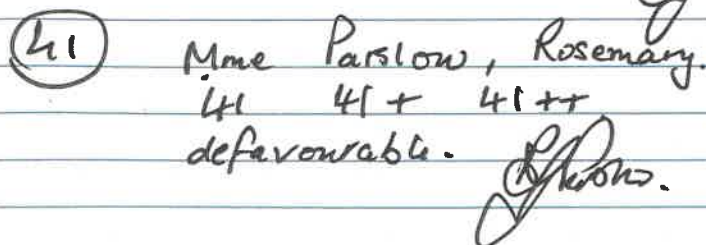 41 Mme Parslow, Rosemary.
41 41+ 41++
defavourable.